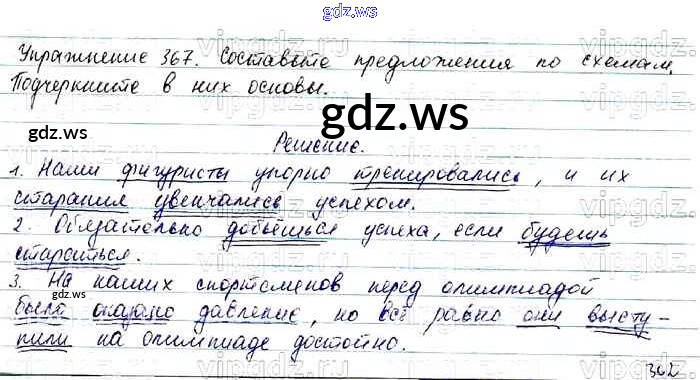 gdz.ws
Упражнение 367. Составьте предложения по схемам.
Подчеркните в них основы.
gdz.ws
gdz.ws
gdz.ws
Решение.
1. Наши фигуристы упорно тренировались, и их
старания увенчались успехом.
2. Обязательно добьёшься успеха, если будешь
стараться.
3. На наших спортсменов перед олимпиадой
было оказано давление, но всё равно они высту-
пили на олимпиаде достойно.
gdz.ws
gdz.ws
gdz.ws
362